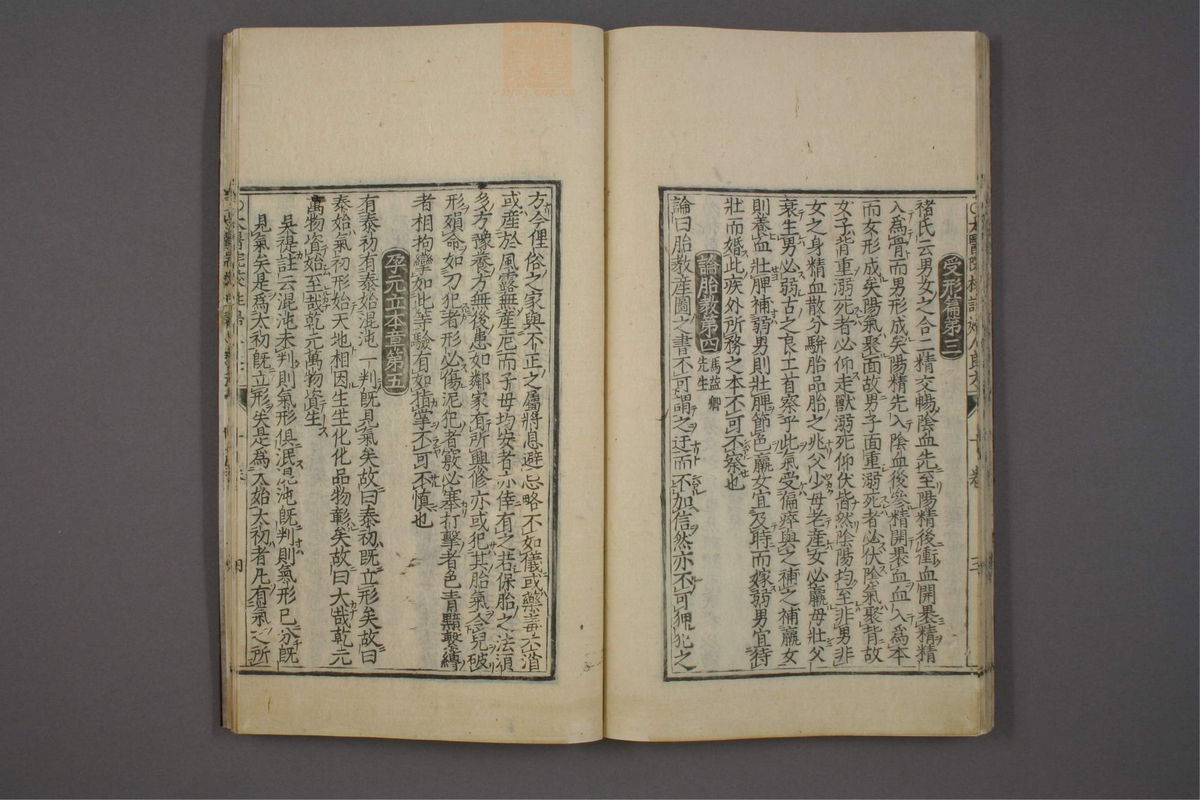 受形篇第三
褚氏云男女之合二精交暢陰血先至陽精後衝血開裹精精
入爲骨而男形成矣陽精先入陰血後參精開裹血血入爲本
而女形成矣陽氣聚面故男子面重溺死者必伏陰氣聚背故
女子背重溺死者必仰走獸溺死仰伏皆然陰陽均至非男非
女之身精血散分駢胎品胎之兆父少母老產女必羸母壯父
衰生男必弱古之良工首察乎此氣受偏瘁與之補之補羸女
則養血壯脾補弱男則壯脾節色羸女宜及時而嫁弱男宜待
壯而婚此疾外所務之本不可不察也
論胎教第四 馬益卿先生
論曰胎教產圖之書不可謂之迂而不加信然亦不可狎犯之
方今俚俗之家與不正之屬將息避忌略不如儀或藥毒
或產於風露無產厄而子母均安者亦倖有之若保胎之法須
多方豫養方無後患如鄰家有所興修亦或犯其胎氣令兒破
形殞命如刀犯者形必傷泥犯者竅必塞打擊者色青黯繫縛
者相拘攣如此等驗有如指掌不可不慎也
孕元立本章第五
有泰初有泰始混沌一判旣見氣矣故曰泰初旣立形矣故曰
泰始氣初形始天地相因生生化化品物彰矣故曰大哉乾元
萬物資始至哉乾元萬物資生
吳禔註云混沌未判則氣形俱泯混沌旣判則氣形已分旣
見氣矣是爲太初旣立形矣是爲太始太初者凡有氣之所